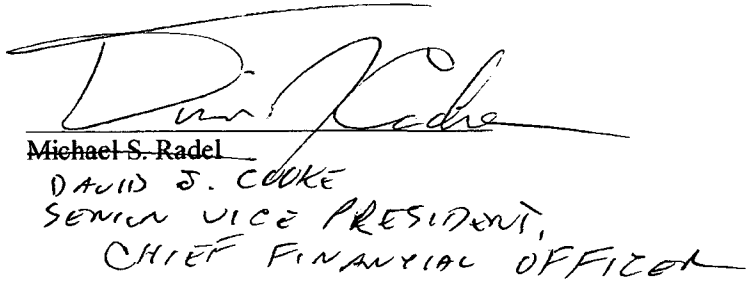 David J Cooke
Michael S. Radel
DAVID J. COOKE
SENIOR VICE PRESIDENT,
CHIEF FINANCIAL OFFICER